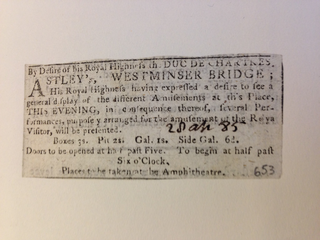 By Desire of his Royal Highness th DUC DE CHARTRES.
ASTLEY's, WESTMINSER BRIDGE;
His Royal Highness having expressed a desire to see a
general display of the different Amusements at this Place,
THIS EVENING, in consequence thereof, several Per-
formances, purposely arranged for the amusement of the Royal
Visitor, will be presented.
Boxes 3s. Pit 2s. Gal. 1s. Side Gal. 6d.
Doors to be opened at half past Five. To begin at half past
Six o'Clock.
Places to be taken at the Amphitheatre.
653